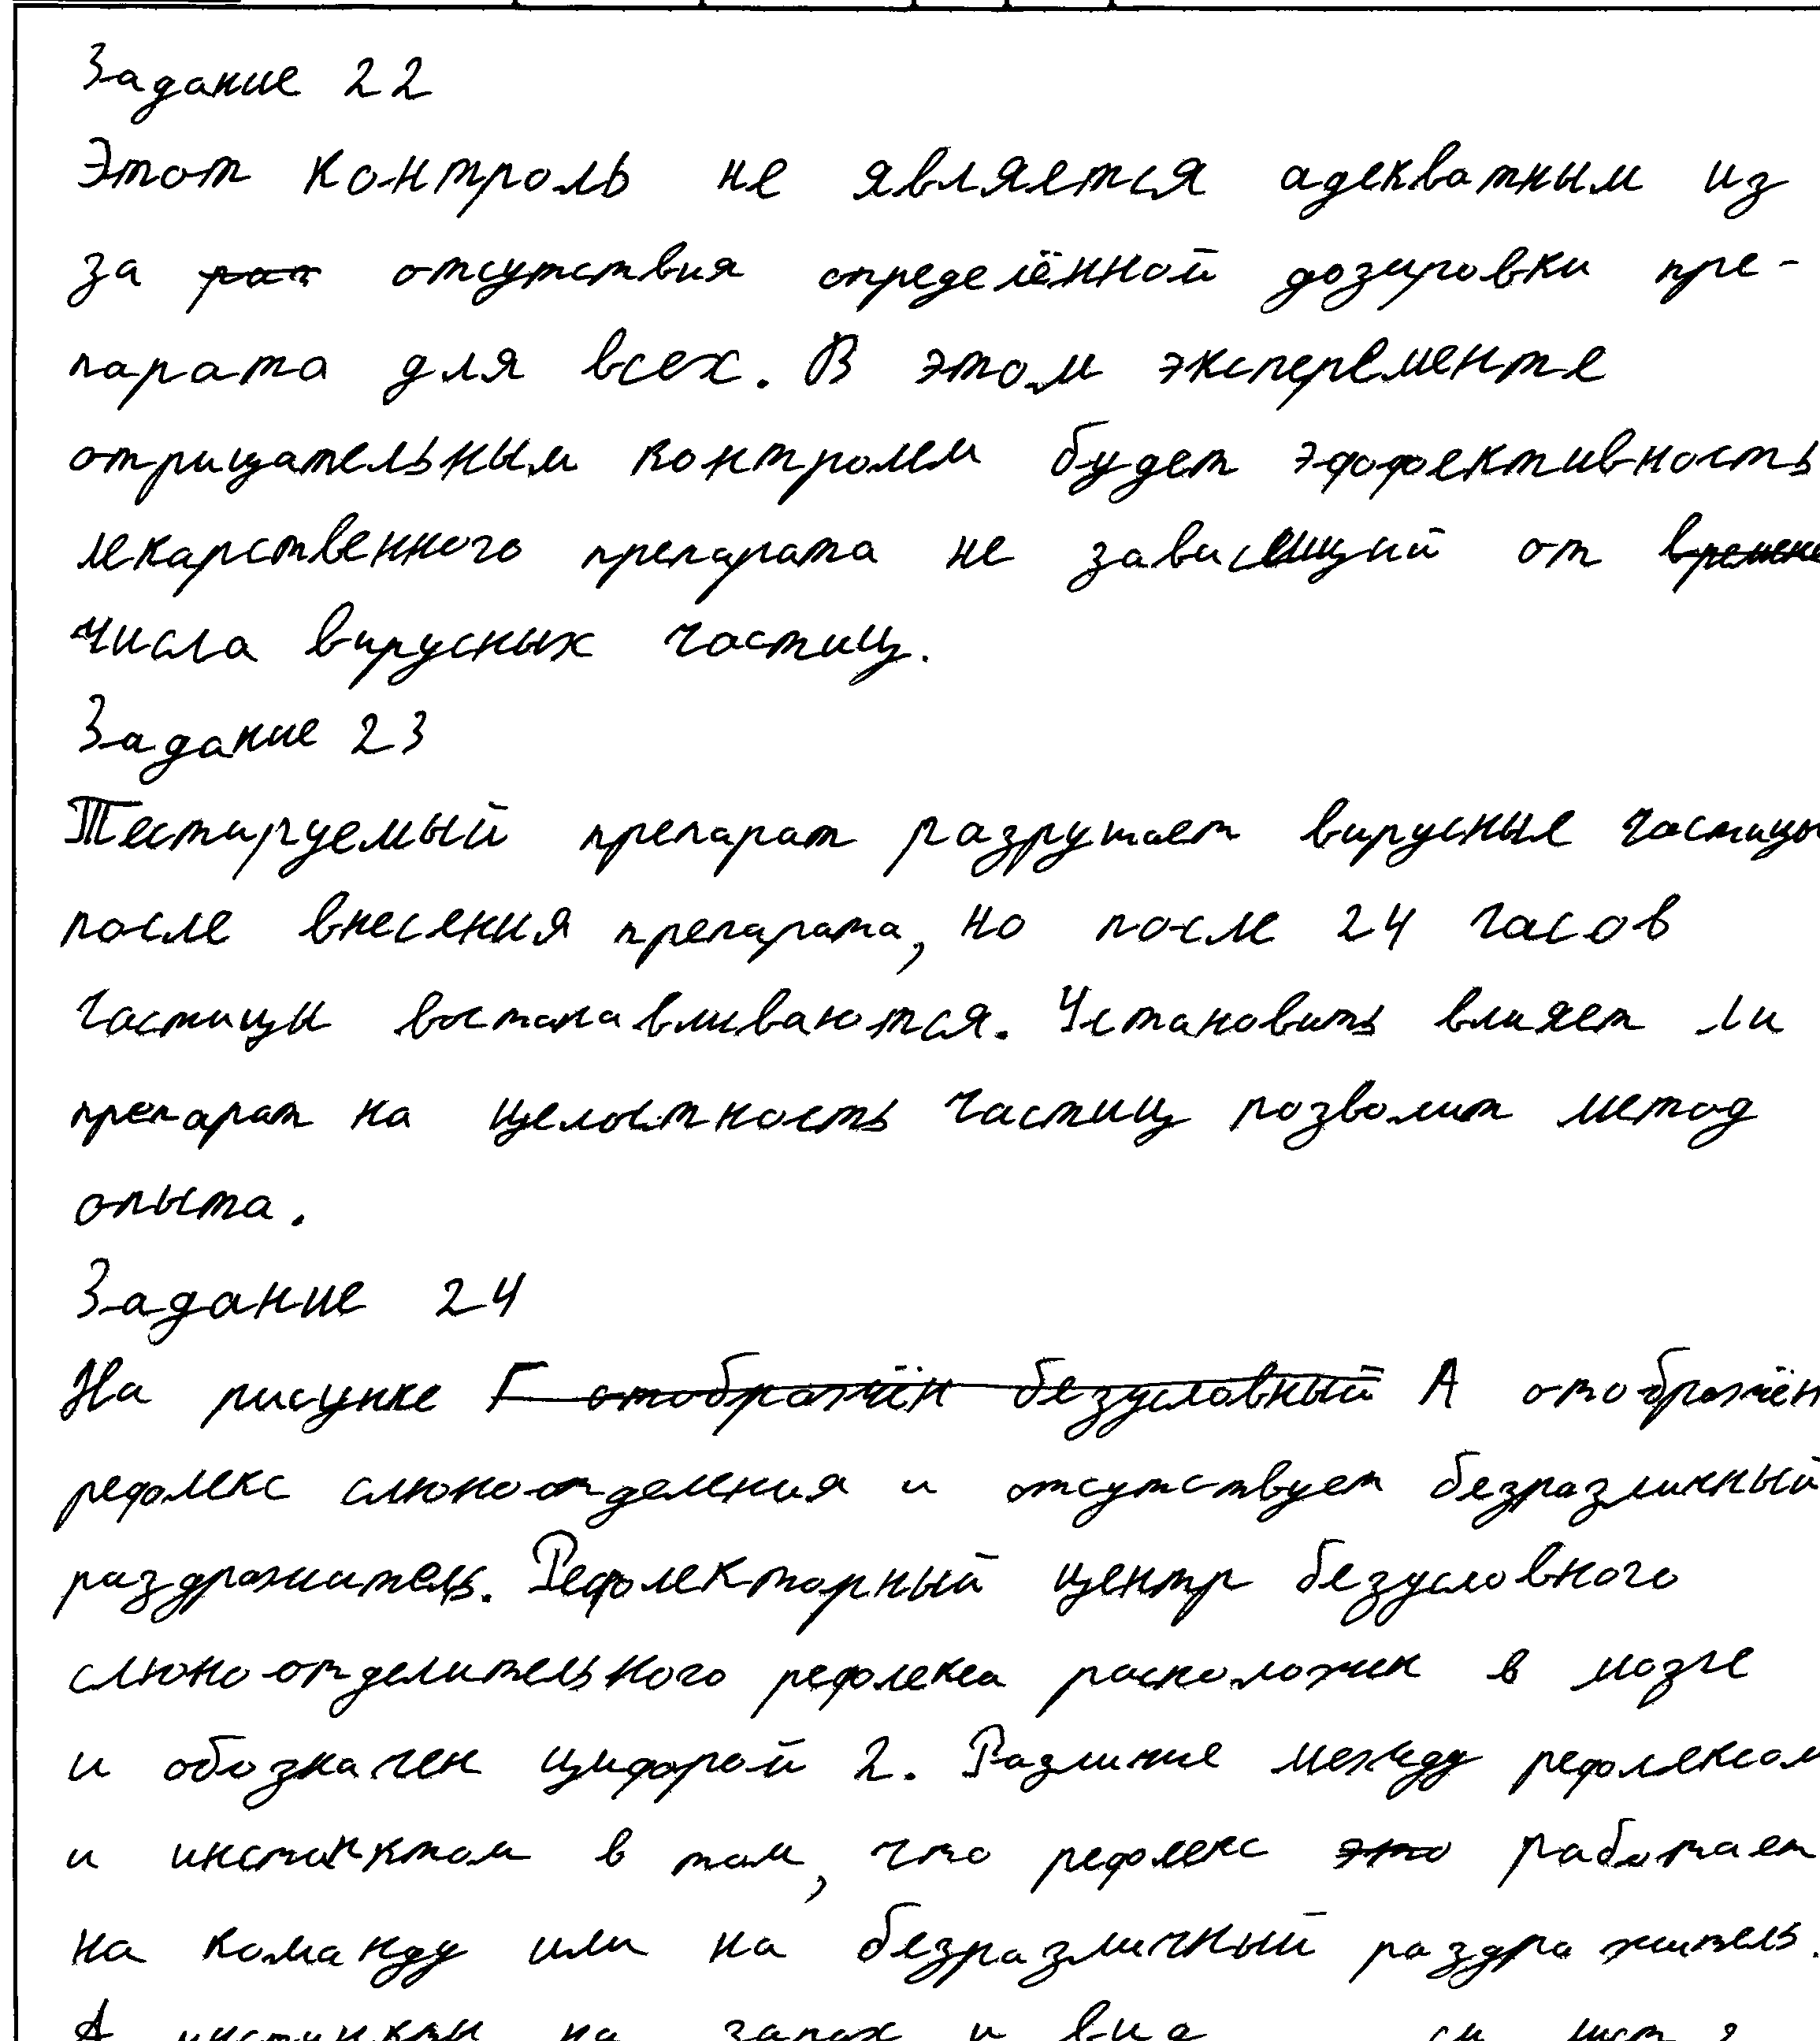 Задание 22
Этот контроль не является адекватным из
за рат отсутствия определённой дозировки пре-
парата для всех. В этом эксперементе
отрицательным контролем будет эффективность
лекарственного препарата не зависещий от времени
числа вирусных частиц.
Задание 23
Тестируемый препарат разрушает вирусные частицы
после внесения препарата, но после 24 часов
частицы востанавливаются. Установить влияет ли
препарат на целостность частиц позволит метод
опыта.
Задание 24
На рисунке Г отображён безусловный А отображён
рефлекс слюноотделения и отсутствует безразличный
раздражитель. Рефлекторный центр безусловного
слюноотделительного рефлекса расположен в мозге
и обозначен цифрой 2. Различие между рефлексом
и инстинктом в том, что рефлекс это работает
на команду или на безразличный раздражитель.
А инстинкты на запах и вид